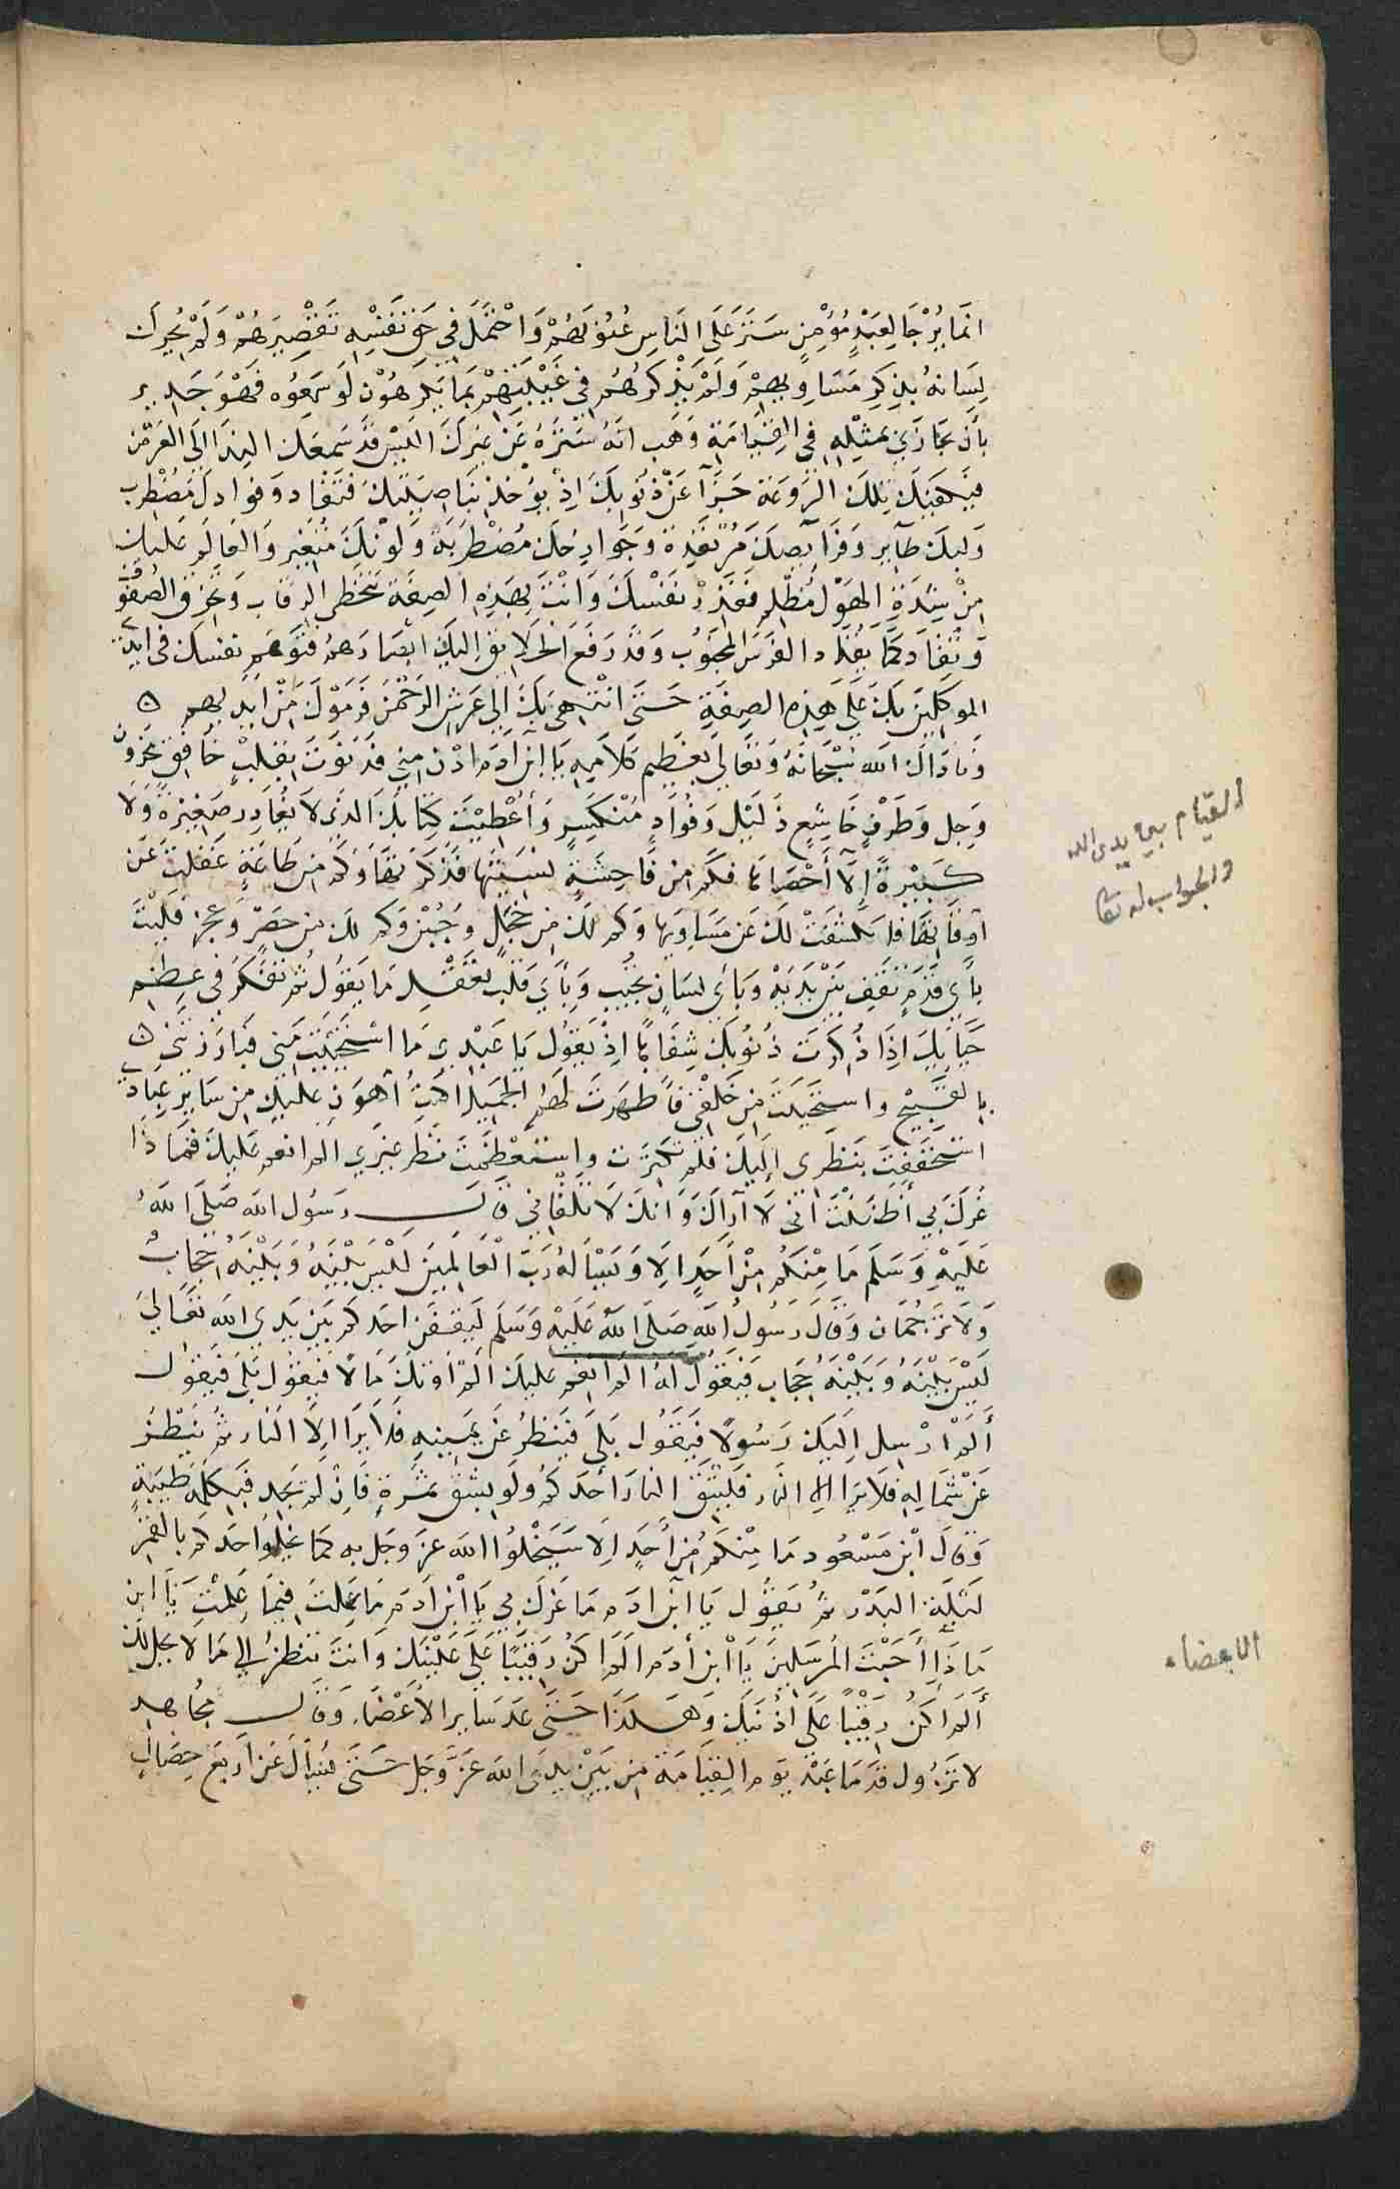 انما يرجا لعبد مؤمن ستر على الناس عيوبهم واحتمل في حق نفسه تقصيرهم ولم يحرك
لسانه بذكر مساويهم ولم يذكرهم في غيبتهم بما يكرهون لو سمعوه فهو جدير
بأن يجازى بمثله في القيامة وهب انه ستره عن غيرك اليس قد سمعك الندا الى العرض
فيكفيك تلك الروعة جزآ عن ذنوبك اذ يؤخذ بناصيتك فتقاد وفوادك مضطرب
ولبك طآير وفرآيصك مرتعدة وجوارحك مضطربة ولونك متغير والعالم عليك
من شدة الهول مظلم فقدر نفسك وانت بهذه الصفة تتخطى الرقاب وتخرق الصفوف
وتقاد كما يقاد الفرس المجنوب وقد رفع الخلايق اليك ابصارهم فتوهم نفسك في ايدي
الموكلين بك على هذه الصفة حتى انتهى بك الى عرش الرحمن فرموك من ايديهم ٥
وناداك الله سبحانه وتعالى بعظيم كلامه يا ابن آدم ادن مني فدنوت بقلب خافق محزون
وجل وطرف خاشع ذليل وفواد منكسر وأعطيت كتابك الذي لا يغادر صغيرة ولا
كبيرة إلا أحصاها فكم من فاحشة نسيتها فذكرتها وكم من طاعة غفلت عن
آوفاتها فانكشفت لك عن مساويها وكم لك من خجل وجبن وكم لك من حصر وعجز فليت
بأي قدم تقف بين يديه وبأي لسان تجيب وبأي قلب تعقل ما يقول ثم تفكر في عظيم
حيايك اذا ذكرت ذنوبك شفاها اذ يقول يا عبدي ما استحييت مني فبارزتني ٥
بالقبيح واستحييت من خلقي فاظهرت لهم الجميل اكنت أهون عليك من ساير عبادي
استخففت بنظرى إليك فلم تكترث واستعظمت نظر غيري الم انعم عليك فماذا
غرك بي أظننت انني لا آراك وانك لا تلقاني قال رسول الله صلى الله
عليه وسلم ما منكم من أحد الا ويسأله رب العالمين ليس بينه وبينه حجاب
ولا ترجمان وقال رسول الله صلى الله عليه وسلم ليقفن احدكم بين يدي الله تعالى
ليس بينه وبينه حجاب فيقول له الم انعم عليك الم أوتك مالا فيقول بلى فيقول
ألم ارسل اليك رسولا فيقول بلى فينظر عن يمينه فلا يرا الا النار ثم ينظر
عن شماله فلا يرا الا النار فليتق النار أحدكم ولو بشق تمرة فان لم يجد فبكلمة طيبة
وقال ابن مسعود ما منكم من أحد الا سيخلوا الله عز وجل به كما يخلوا احدكم بالقمر
ليلة البدر ثم يقول يا ابن ادم ما غرك بي يا ابن ادم ما عملت فيما علمت يا ابن
ماذا أجبت المرسلين يا ابن أدم الم اكن رقيبا على عينيك وانت تنظر الى ما لا يحل لك
ألم اكن رقيبا على اذنيك وهكذا حتى عد ساير الاعضاء وقال مجاهد
لا تزول قدما عبد يوم القيامة من بين يدي الله عز وجل حتى يسأل عن اربع خصال
القيام بين يدى الله
والجواب له تعا
الاعضاء